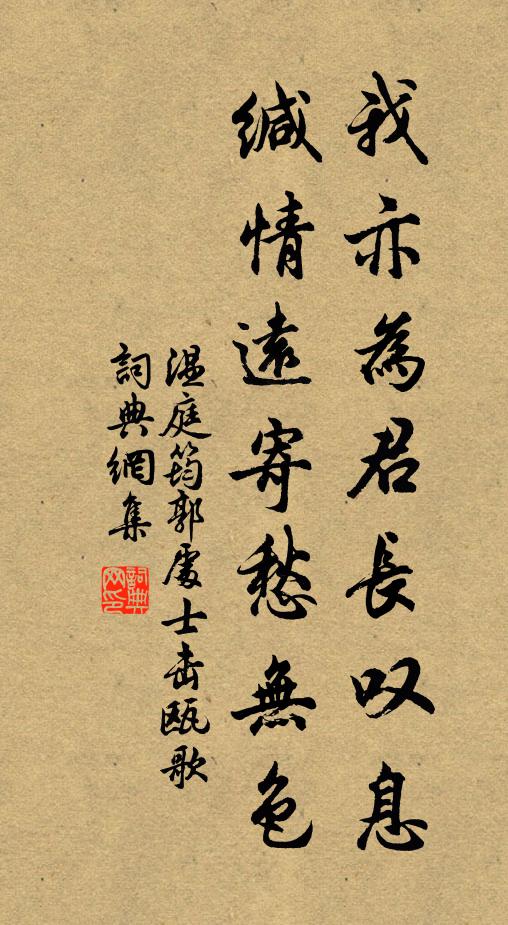 我亦為君長叹息
緘情遠寄愁無色
温庭筠郭處士击瓯歌
詞典網集
詞典网印